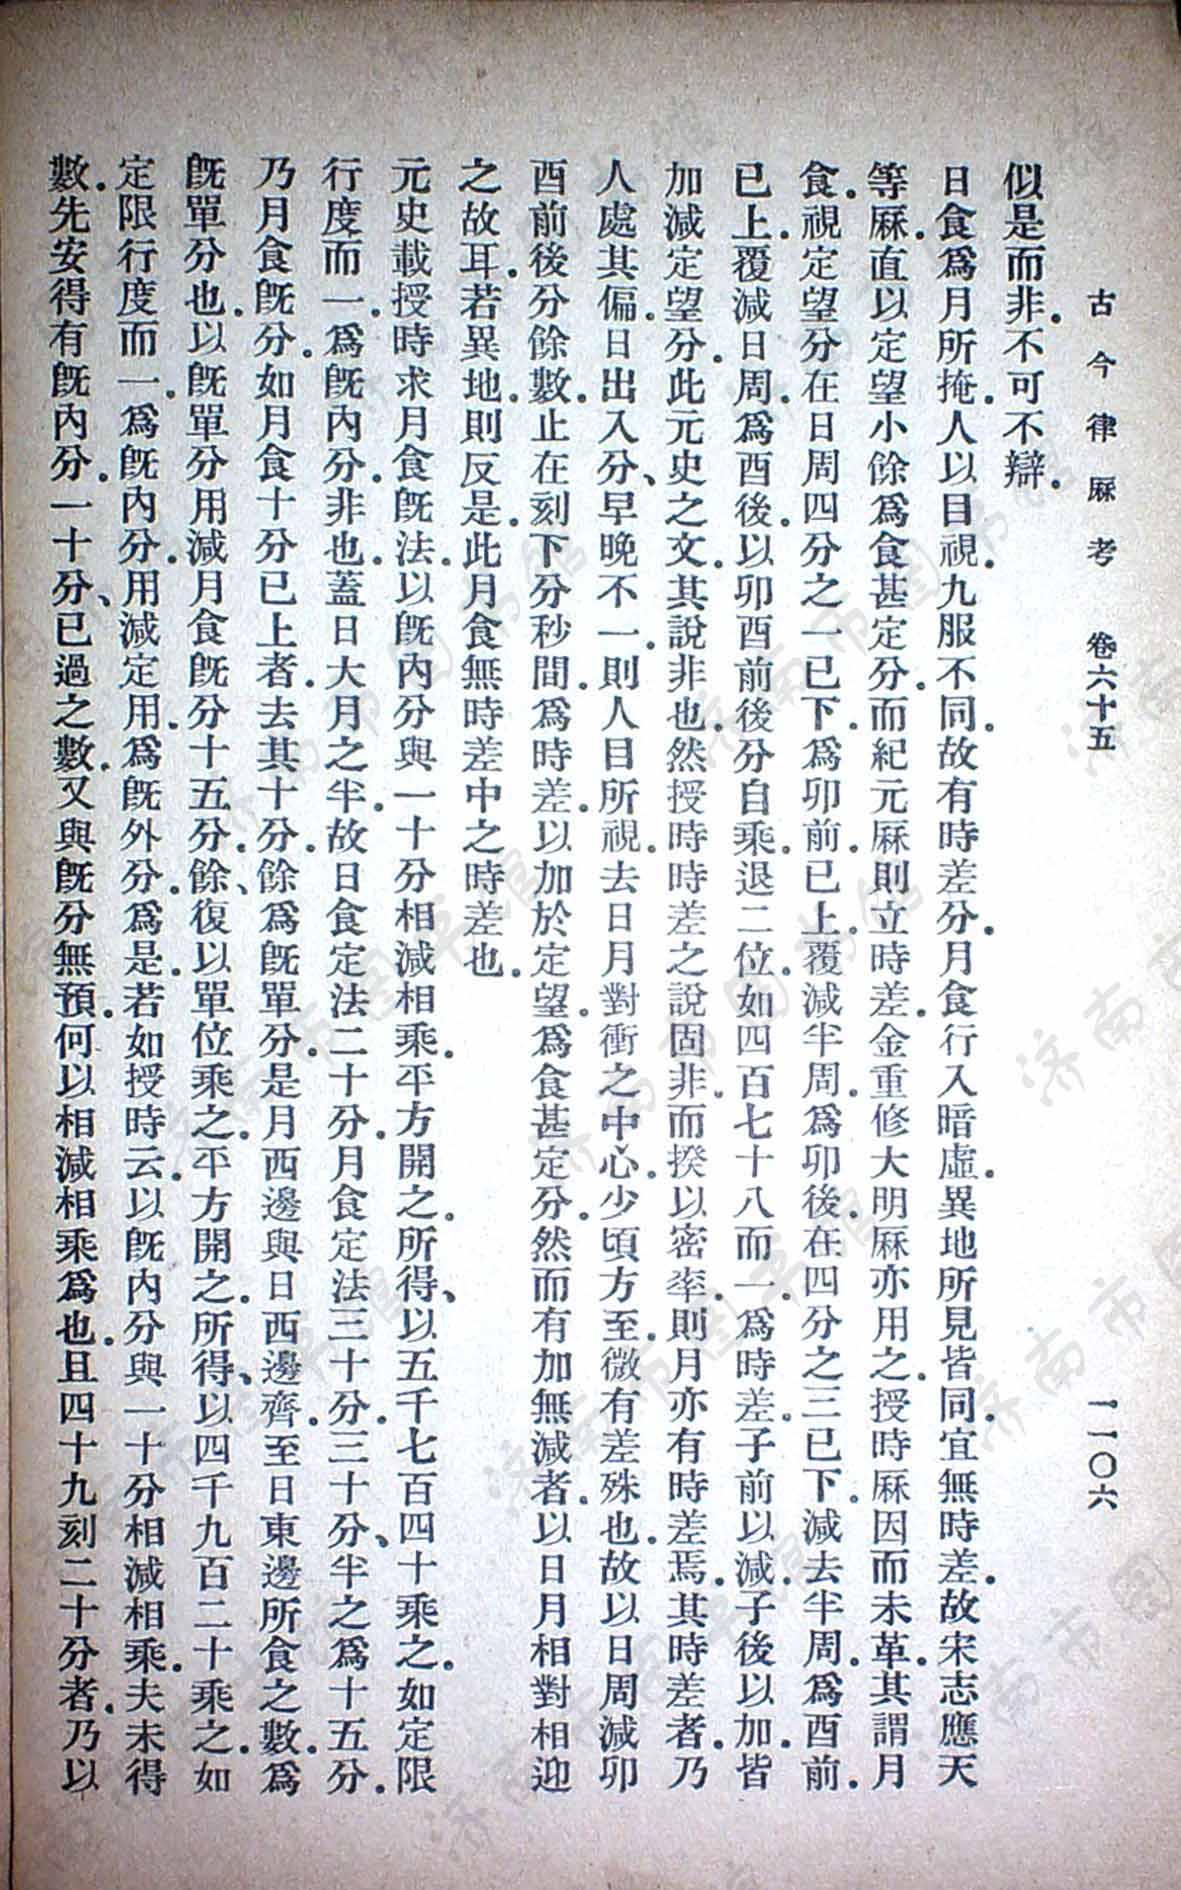 古今律厤考 卷六十五 一一〇六
似是而非。不可不辯。
日食爲月所掩。人以目視。九服不同。故有時差分。月食行入暗虛。異地所見皆同。宜無時差。故宋志應天
等厤。直以定望小餘爲食甚定分。而紀元厤則立時差。金重修大明厤亦用之。授時厤因而未革。其謂月
食。視定望分在日周四分之一已下。爲卯前。已上。覆減半周。爲卯後。在四分之三已下。減去半周。爲酉前。
已上。覆減日周。爲酉後。以卯酉前後分自乘。退二位。如四百七十八而一。爲時差。子前以減。子後以加。皆
加減定望分。此元史之文。其說非也。然授時時差之說固非。而揆以密率。則月亦有時差焉。其時差者。乃
人處其偏。日出入分、早晚不一。則人目所視。去日月對衝之中心。少頃方至。微有差殊也。故以日周減卯
酉前後分餘數。止在刻下分秒間。爲時差。以加於定望。爲食甚定分。然而有加無減者。以日月相對相迎
之故耳。若異地。則反是。此月食無時差中之時差也。
元史載授時求月食旣法。以旣內分與一十分相減相乘。平方開之。所得、以五千七百四十乘之。如定限
行度而一。爲旣內分。非也。蓋日大月之半。故日食定法二十分。月食定法三十分。三十分、半之爲十五分。
乃月食旣分。如月食十分已上者。去其十分。餘爲旣單分。是月西邊與日西邊齊。至日東邊所食之數。爲
旣單分也。以旣單分用減月食旣分十五分。餘、復以單位乘之。平方開之。所得、以四千九百二十乘之。如
定限行度而一。爲旣內分。用減定用。爲旣外分。爲是。若如授時云。以旣內分與一十分相減相乘。夫未得
數。先安得有旣內分。一十分、已過之數。又與旣分無預。何以相減相乘爲也。且四十九刻二十分者。乃以